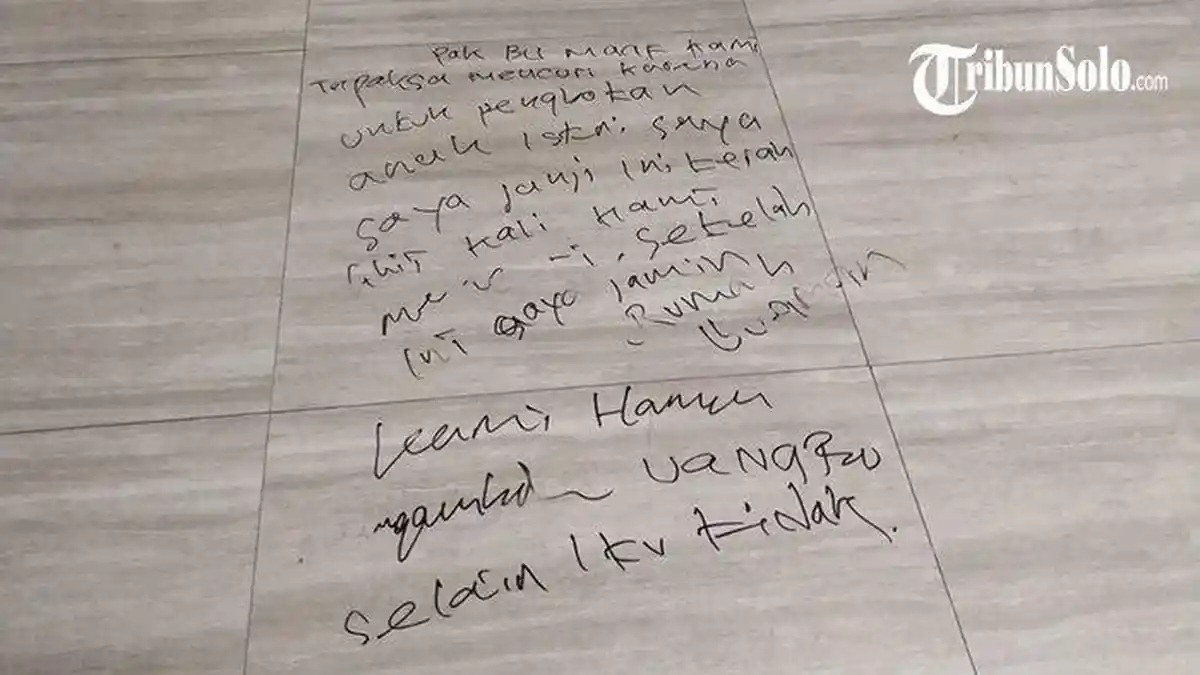 TribunSolo.com
Pak Bu Maaf Kami
Terpaksa mencuri karena
untuk pengbotan
anak istri saya
saya janji ini terah
hir kali kami
setelah
ini saya jamin
Rumah
Ibu aman
kami Hanya
UANG
selain itu tidak.